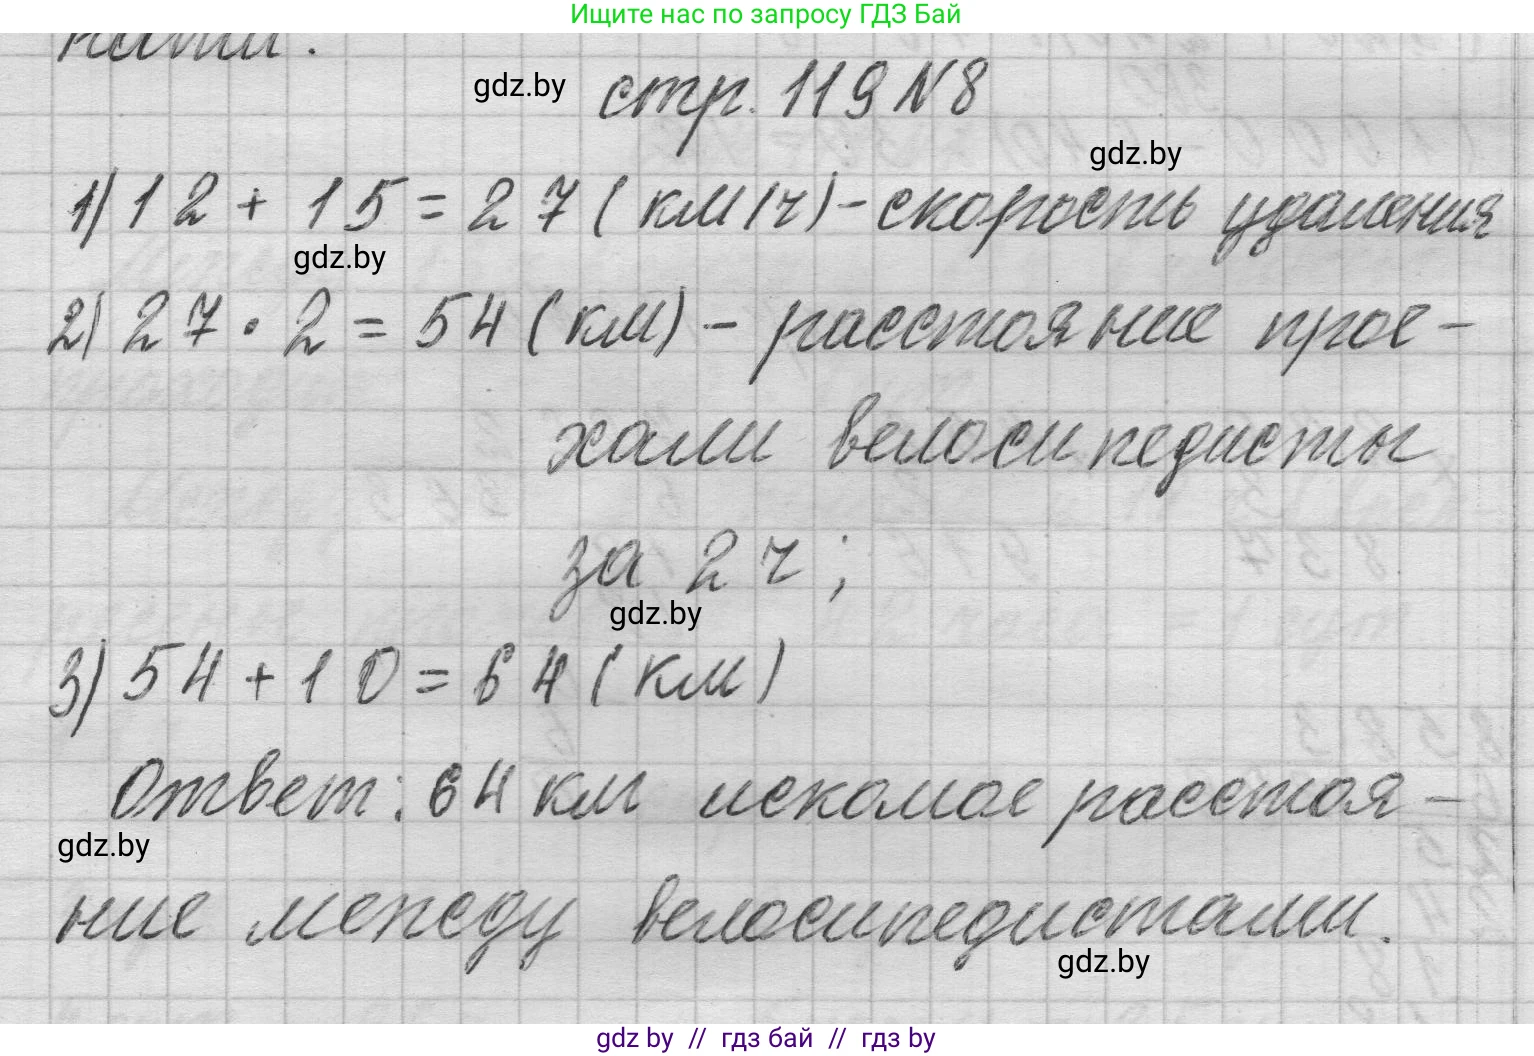 Ищите нас по запросу ГДЗ Бай
стр. 119 N 8
gdz.by
gdz.by
1) 12 + 15 = 27 (км/ч) - скорость удаления
gdz.by
2) 27 · 2 = 54 (км) - расстояние прое-
хали велосипедисты
за 2 ч;
gdz.by
3) 54 + 10 = 64 (км)
Ответ: 64 км искомое расстоя-
gdz.by
ние между велосипедистами.
gdz.by
gdz by // гдз бай // гдз by